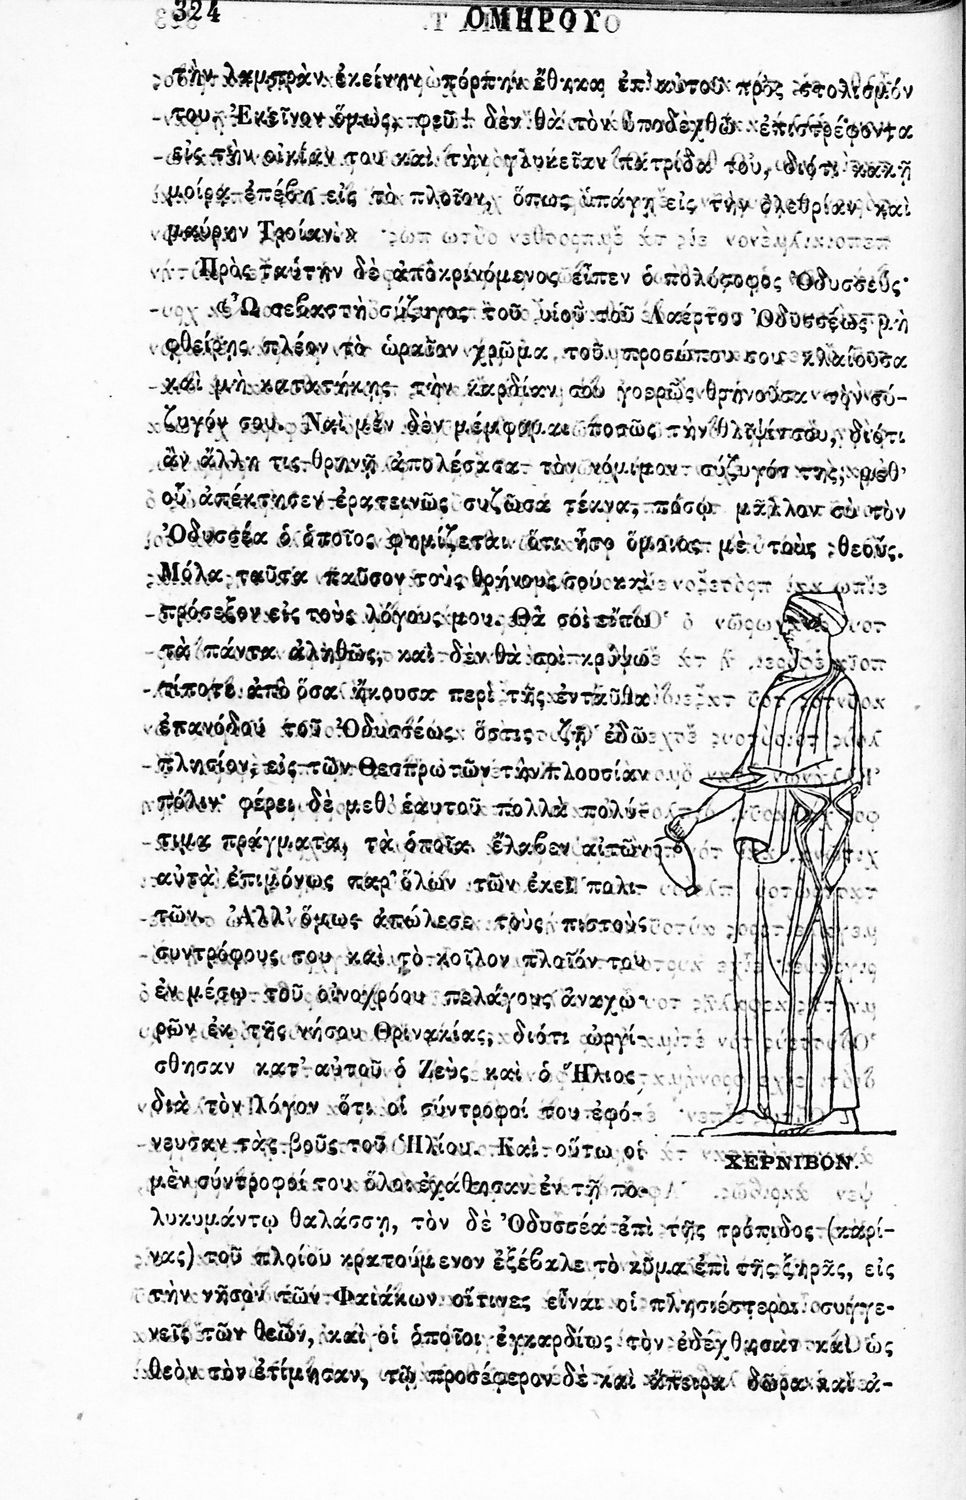 324
ΟΜΗΡΟΥ
τὴν λαμπρὰν ἐκείνην πόρπην ἔθηκα ἐπ' αὐτοῦ πρὸς στολισμόν
του. Ἐκεῖνον ὅμως, φεῦ! δὲν θὰ τὸν ὑποδεχθῶ ἐπιστρέφοντα
εἰς τὴν οἰκίαν του καὶ τὴν γλυκεῖαν πατρίδα του, διότι κακῇ
μοίρᾳ ἐπέβη εἰς τὸ πλοῖον, ὅπως ὑπάγῃ εἰς τὴν ὀλεθρίαν καὶ
μαύρην Τροίαν.»
Πρὸς ταύτην δὲ ἀποκρινόμενος εἶπεν ὁ πολύσοφος Ὀδυσσεύς·
«Ὦ σεβαστὴ σύζυγος τοῦ υἱοῦ τοῦ Λαέρτου Ὀδυσσέως μὴ
φθείρῃς πλέον τὸ ὡραῖον χρῶμα τοῦ προσώπου σου κλαίουσα
καὶ μὴ κατατήκῃς τὴν καρδίαν σου γοερῶς θρηνοῦσα τὸν σύ-
ζυγόν σου. Ναὶ μὲν δὲν μέμφομαι ποσῶς τὴν θλίψίν σου, διότι
ἂν ἄλλη τις θρηνῇ ἀπολέσασα τὸν νόμιμον σύζυγόν της, μεθ'
οὗ ἀπέκτησεν ἐρατεινῶς συζῶσα τέκνα, πόσῳ μᾶλλον σὺ τὸν
Ὀδυσσέα ὁ ὁποῖος φημίζεται ὅτι ἦτο ὅμοιος μὲ τοὺς θεούς.
Μόλα ταῦτα παῦσον τοὺς θρήνους σου καὶ
πρόσεξον εἰς τοὺς λόγους μου. Θὰ σοὶ εἴπω
τὰ πάντα ἀληθῶς, καὶ δὲν θὰ σοὶ κρύψω
τίποτε ἀπὸ ὅσα ἤκουσα περὶ τῆς ἐνταῦθα
ἐπανόδου τοῦ Ὀδυσσέως ὅστις ζῇ ἐδῶ
πλησίον, εἰς τῶν Θεσπρωτῶν τὴν πλουσίαν
πόλιν· φέρει δὲ μεθ' ἑαυτοῦ πολλὰ πολύ-
τιμα πράγματα, τὰ ὁποῖα ἔλαβεν αἰτῶν
αὐτὰ ἐπιμόνως παρ' ὅλων τῶν ἐκεῖ πολι-
τῶν. Ἀλλ' ὅμως ἀπώλεσε τοὺς πιστοὺς
συντρόφους του καὶ τὸ κοῖλον πλοῖόν του
ἐν μέσῳ τοῦ οἰνοχρόου πελάγους ἀναχω-
ρῶν ἐκ τῆς νήσου Θρινακίας, διότι ὠργί-
σθησαν κατ' αὐτοῦ ὁ Ζεὺς καὶ ὁ Ἥλιος
διὰ τὸν λόγον ὅτι οἱ σύντροφοί του ἐφό-
νευσαν τὰς βοῦς τοῦ Ἡλίου. Καὶ οὕτω οἱ
μὲν σύντροφοί του ὅλοι ἐχάθησαν ἐν τῇ πο-
λυκυμάντῳ θαλάσσῃ, τὸν δὲ Ὀδυσσέα ἐπὶ τῆς τρόπιδος (καρί-
νας) τοῦ πλοίου κρατούμενον ἐξέβαλε τὸ κῦμα ἐπὶ τῆς ξηρᾶς, εἰς
τὴν νῆσον τῶν Φαιάκων οἵτινες εἶναι οἱ πλησιέστεροι συγγε-
νεῖς τῶν θεῶν, καὶ οἱ ὁποῖοι ἐγκαρδίως τὸν ἐδέχθησαν καὶ ὡς
θεὸν τὸν ἐτίμησαν, τῷ προσέφερον δὲ καὶ ἄπειρα δῶρα καὶ ἀ-
ΧΕΡΝΙΒΟΝ.